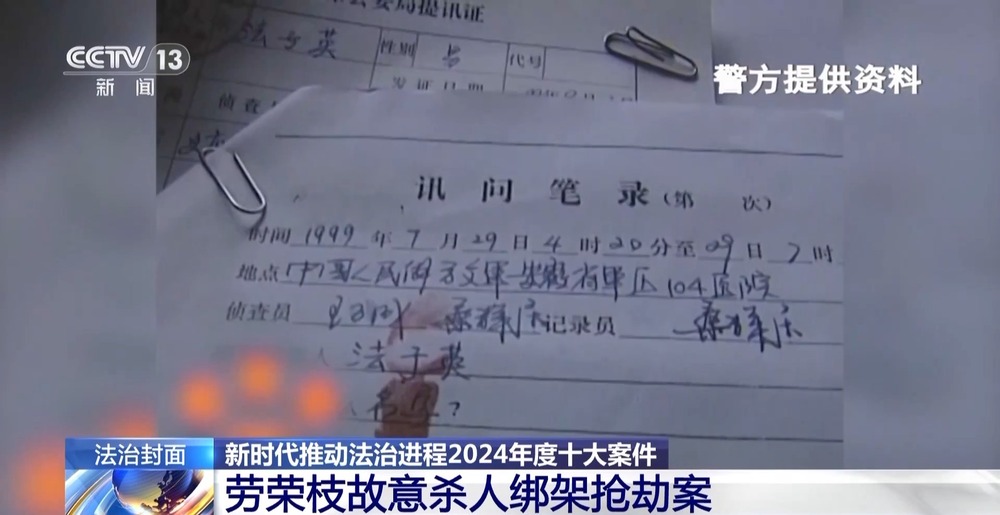 公安局提讯证
CCTV 13
新闻
法子英 性别 男 代号
警方提供资料
发证日期
侦查
讯问笔录(第 次)
时间 1999 年 7 月 29 日 4 时 20 分至 29 日 7 时
地点 中国人民解放军安徽省军区104医院
侦查员 记录员
法子英
新时代推动法治进程2024年度十大案件
法治封面
劳荣枝故意杀人绑架抢劫案